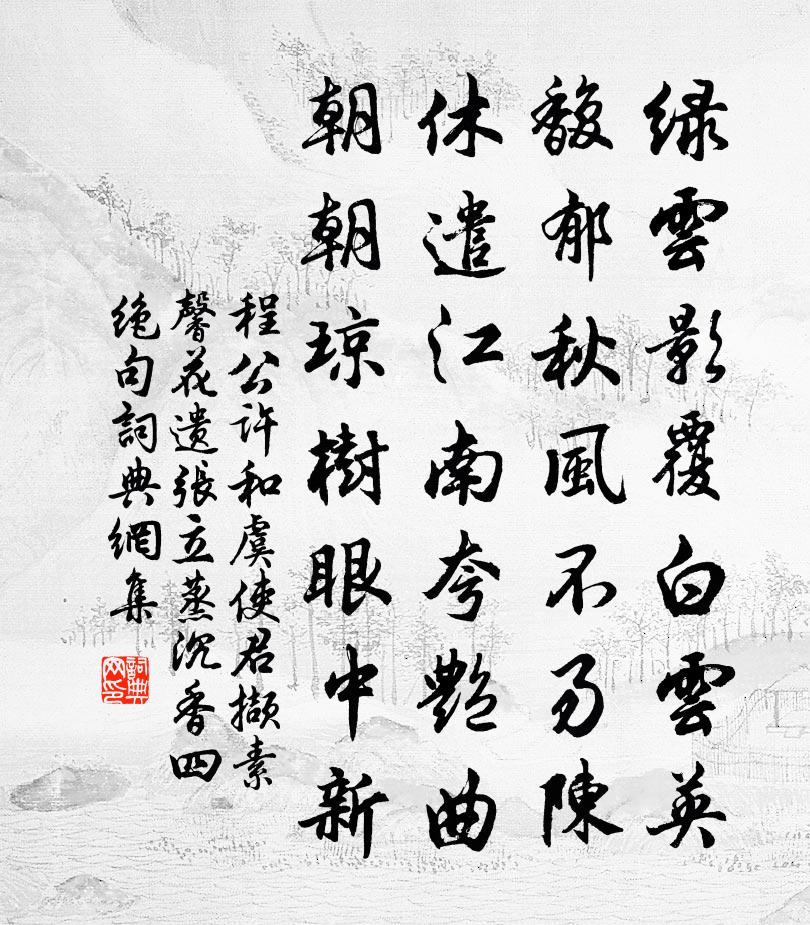 绿雲影覆白雲英
馥郁秋風不乃陳
休遣江南夸艷曲
朝朝琼樹眼中新
程公许和虞使君撷素
馨花遗張立蒸沉香四
绝句詞典網集
詞典
网印